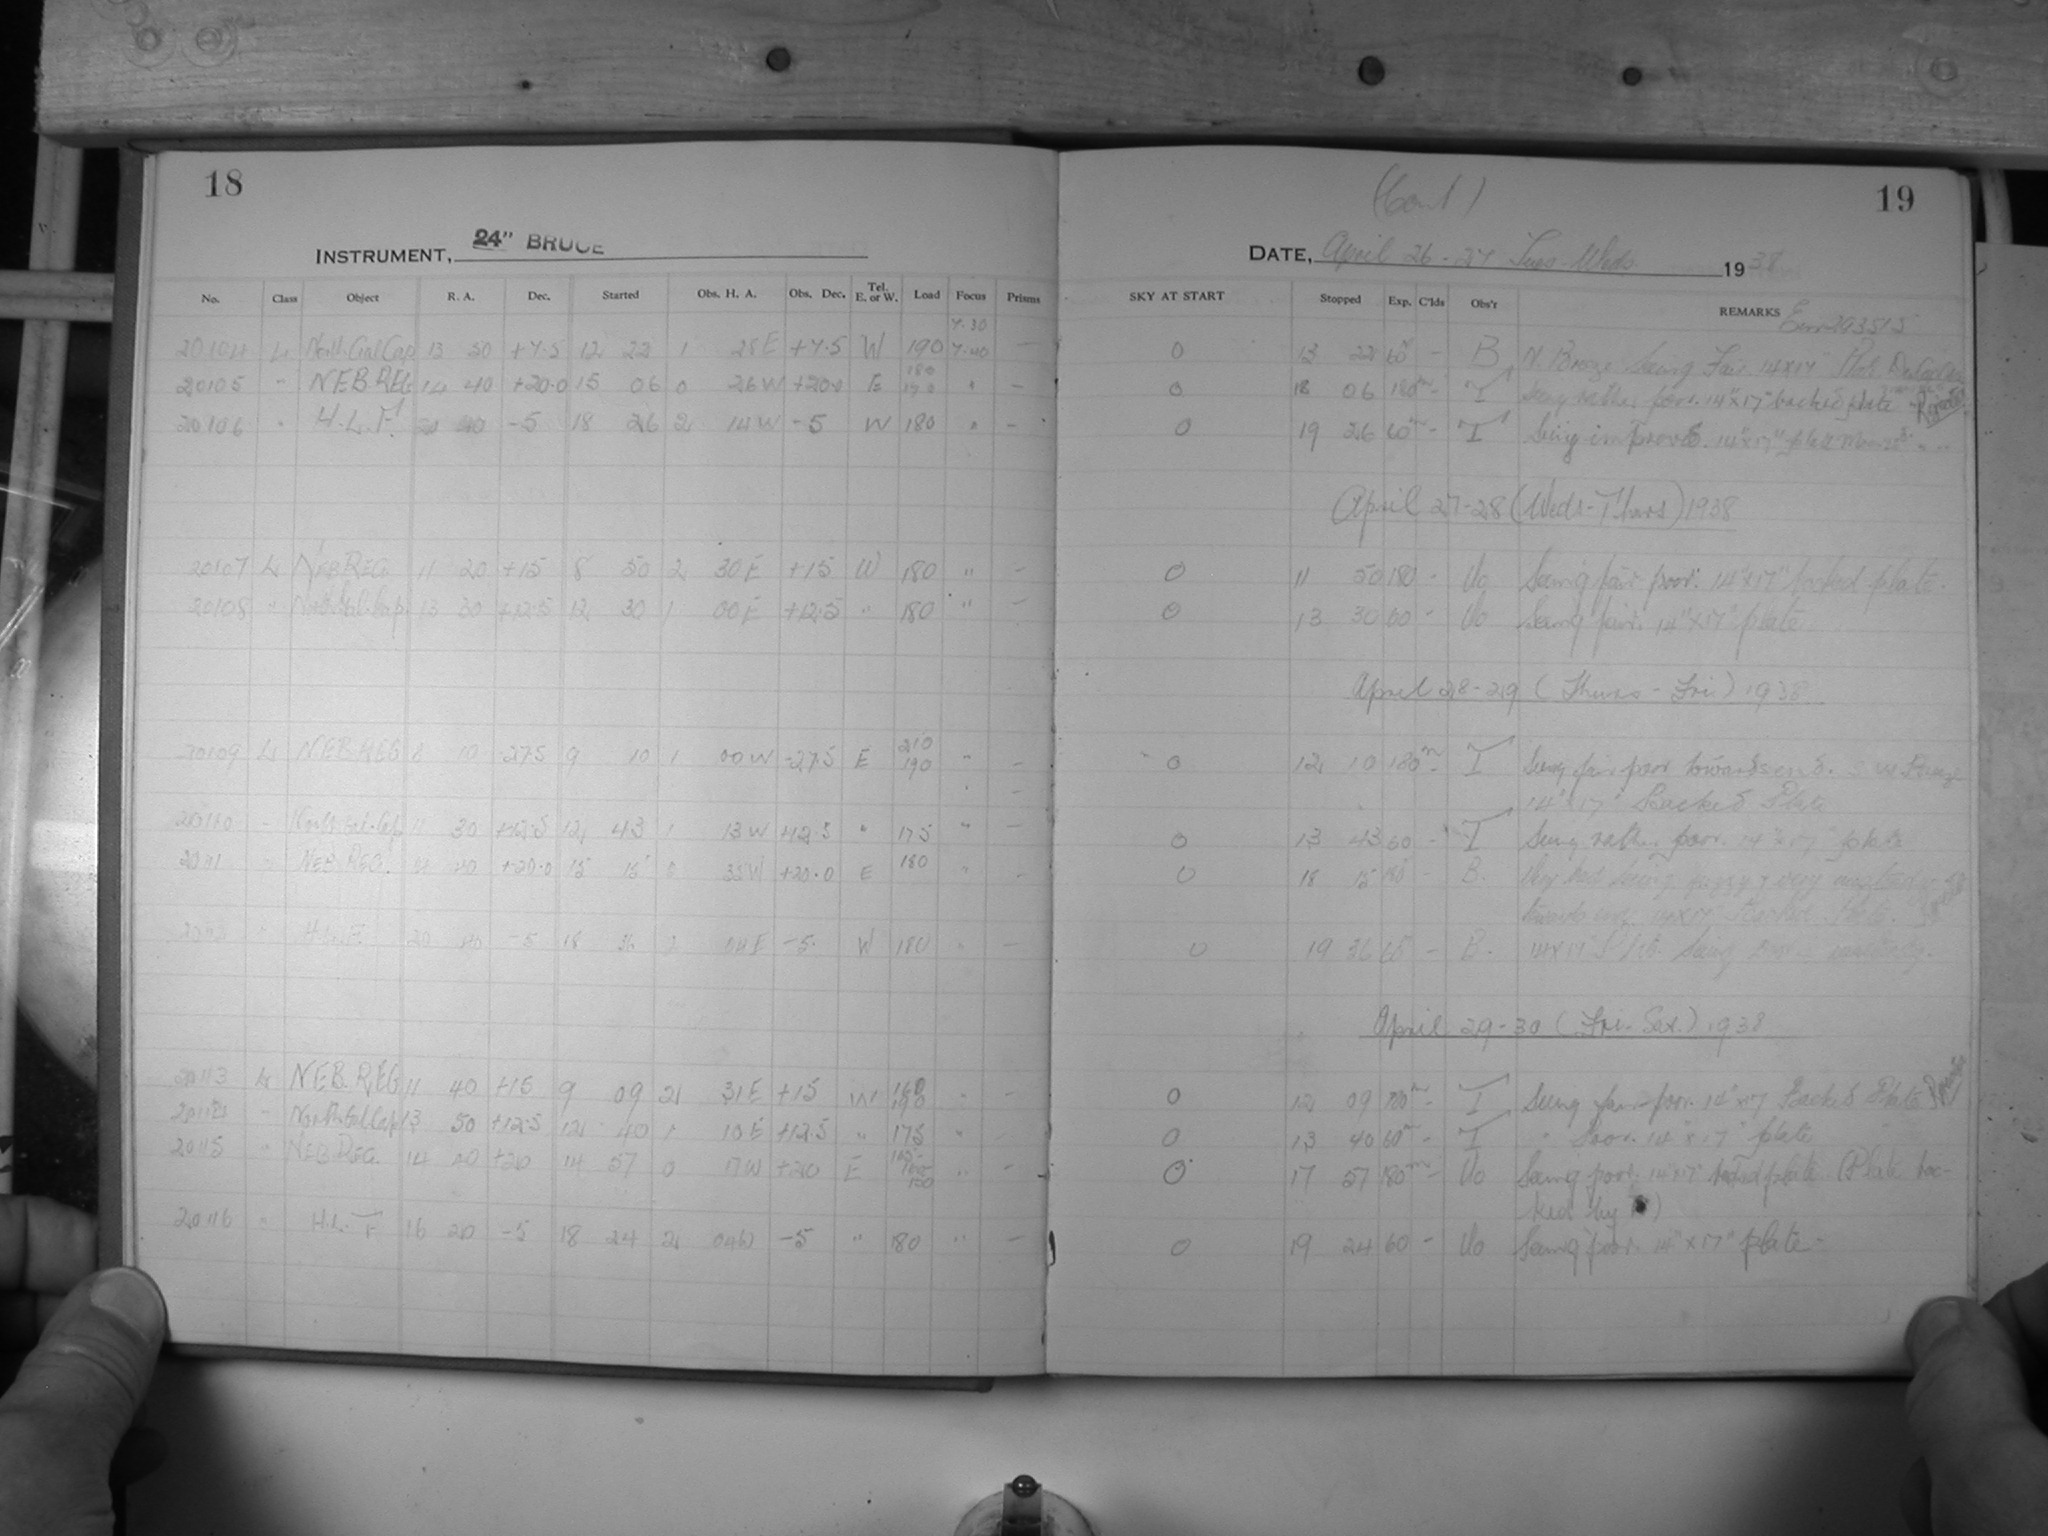 18
INSTRUMENT, 24" BRUCE
No. Class Object R. A. Dec. Started Obs. H. A. Obs. Dec. Tel. E. or W. Load Focus Prisms
7.30
20104 L North Gal Cap 13 50 +7.5 12 22 1 28 E +7.5 W 190 7.40 —
180
20105 " NEB.REG 14 40 +20.0 15 06 0 26 W +20.0 E 190 " —
20106 " H.L.F. 40 -5 18 26 2 14 W -5 W 180 " —
20107 L NEB.REG. 11 20 +15 8 50 2 30 E +15 W 180 " —
20108 " North Gal. Cap 13 30 +12.5 12 30 1 00 E +12.5 " 180 " —
210
20109 L NEB.REG 8 10 -27.5 9 10 1 00 W -27.5 E 190 " —
20110 " North Gal. Cap 11 30 +12.5 12 43 1 13 W +12.5 " 175 " —
20111 " NEB.REG. 40 +20.0 15 15 0 35 W +20.0 E 180 " —
H.L.F. 20 40 -5 18 36 2 04 E -5 W 180 " —
20113 L NEB.REG 11 40 +15 9 09 2 31 E +15 W 160 190 " —
20114 " North Gal Cap 13 50 +12.5 12 40 1 10 E +12.5 " 175 " —
20115 " NEB.REG. 14 40 +20 14 57 0 17 W +20 E " —
20116 " H.L.F 16 20 -5 18 24 2 04 W -5 " 180 " —
(Cont)
19
DATE, April 26-27 Tues-Weds. 1938
SKY AT START Stopped Exp. C'lds Obs'r REMARKS
0 13 22 60 – B N. Breeze Seeing Fair 14x17 Plate
0 18 06 180m – T Seeing rather poor. 14"x17" backed plate
0 19 26 60m – T Seeing improved. 14"x17" plate
April 27-28 (Weds-Thurs) 1938
0 11 50 180 – Uo Seeing fair poor. 14"x17" backed plate.
0 13 30 60 – Uo Seeing fair. 14"x17" plate
April 28-29 (Thurs-Fri) 1938
0 12 10 180m – T Seeing fair poor towards end.
14"x17" Backed Plate
0 13 43 60 – T Seeing rather poor. 14"x17" plate
0 18 15 180 – B. Very bad seeing fuzzy & very unsteady
towards end 14x17 Backed Plate.
0 19 36 60 – B. 14x17 Plate Seeing poor – unsteady.
April 29-30 (Fri-Sat.) 1938
0 12 09 180m – T Seeing fair-poor. 14"x17" Backed Plate
0 13 40 60m – T " Poor. 14"x17" plate
0 17 57 180m – Uo Seeing poor. 14"x17" backed plate (Plate bac-
ked by )
0 19 24 60 – Uo Seeing poor. 14"x17" plate –